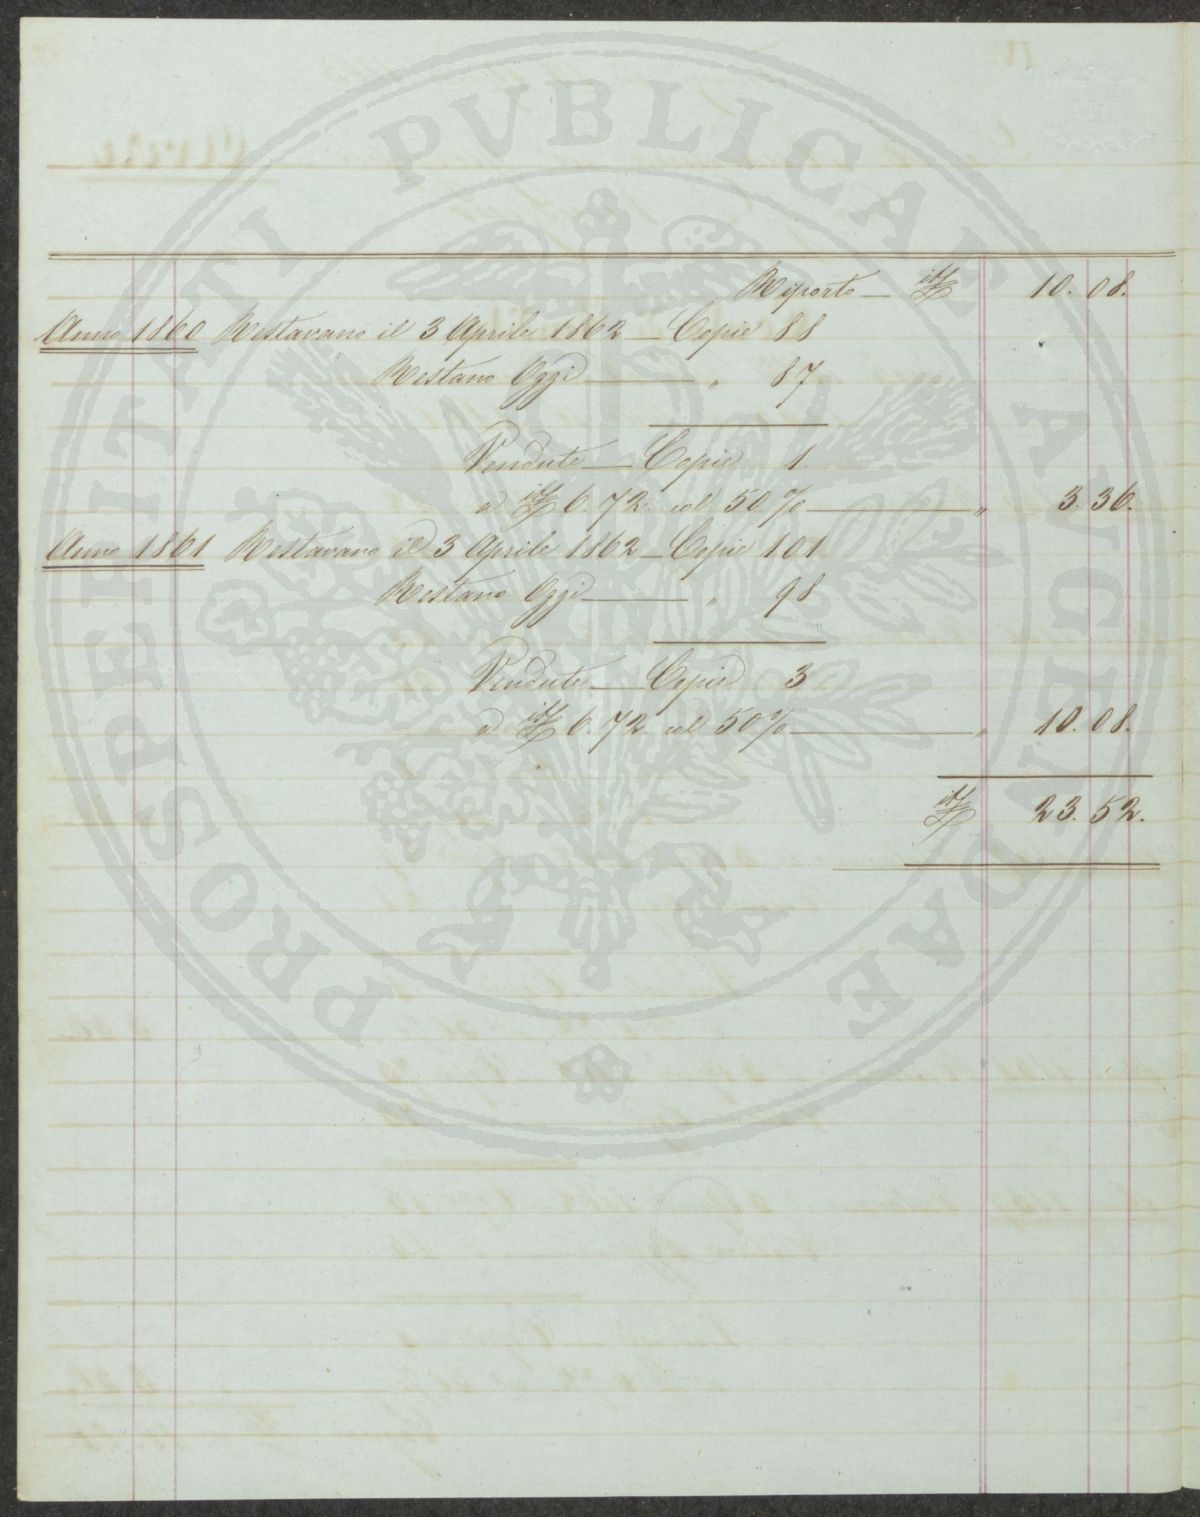 PROSPERITATI PVBLICAE AVGENDAE
Riporto — it£ 10. 08.
Anno 1860 Restavano il 3 Aprile 1862 — Copie 88
Restano Oggi — " 87
Vendute — Copie 1.
a it£ 6. 72. col 50 % — " 3. 36.
Anno 1861 Restavano il 3 Aprile 1862 — Copie 101
Restano Oggi — " 98
Vendute — Copie 3
a it£ 6. 72. col 50 % — " 10. 08.
it£ 23. 52.